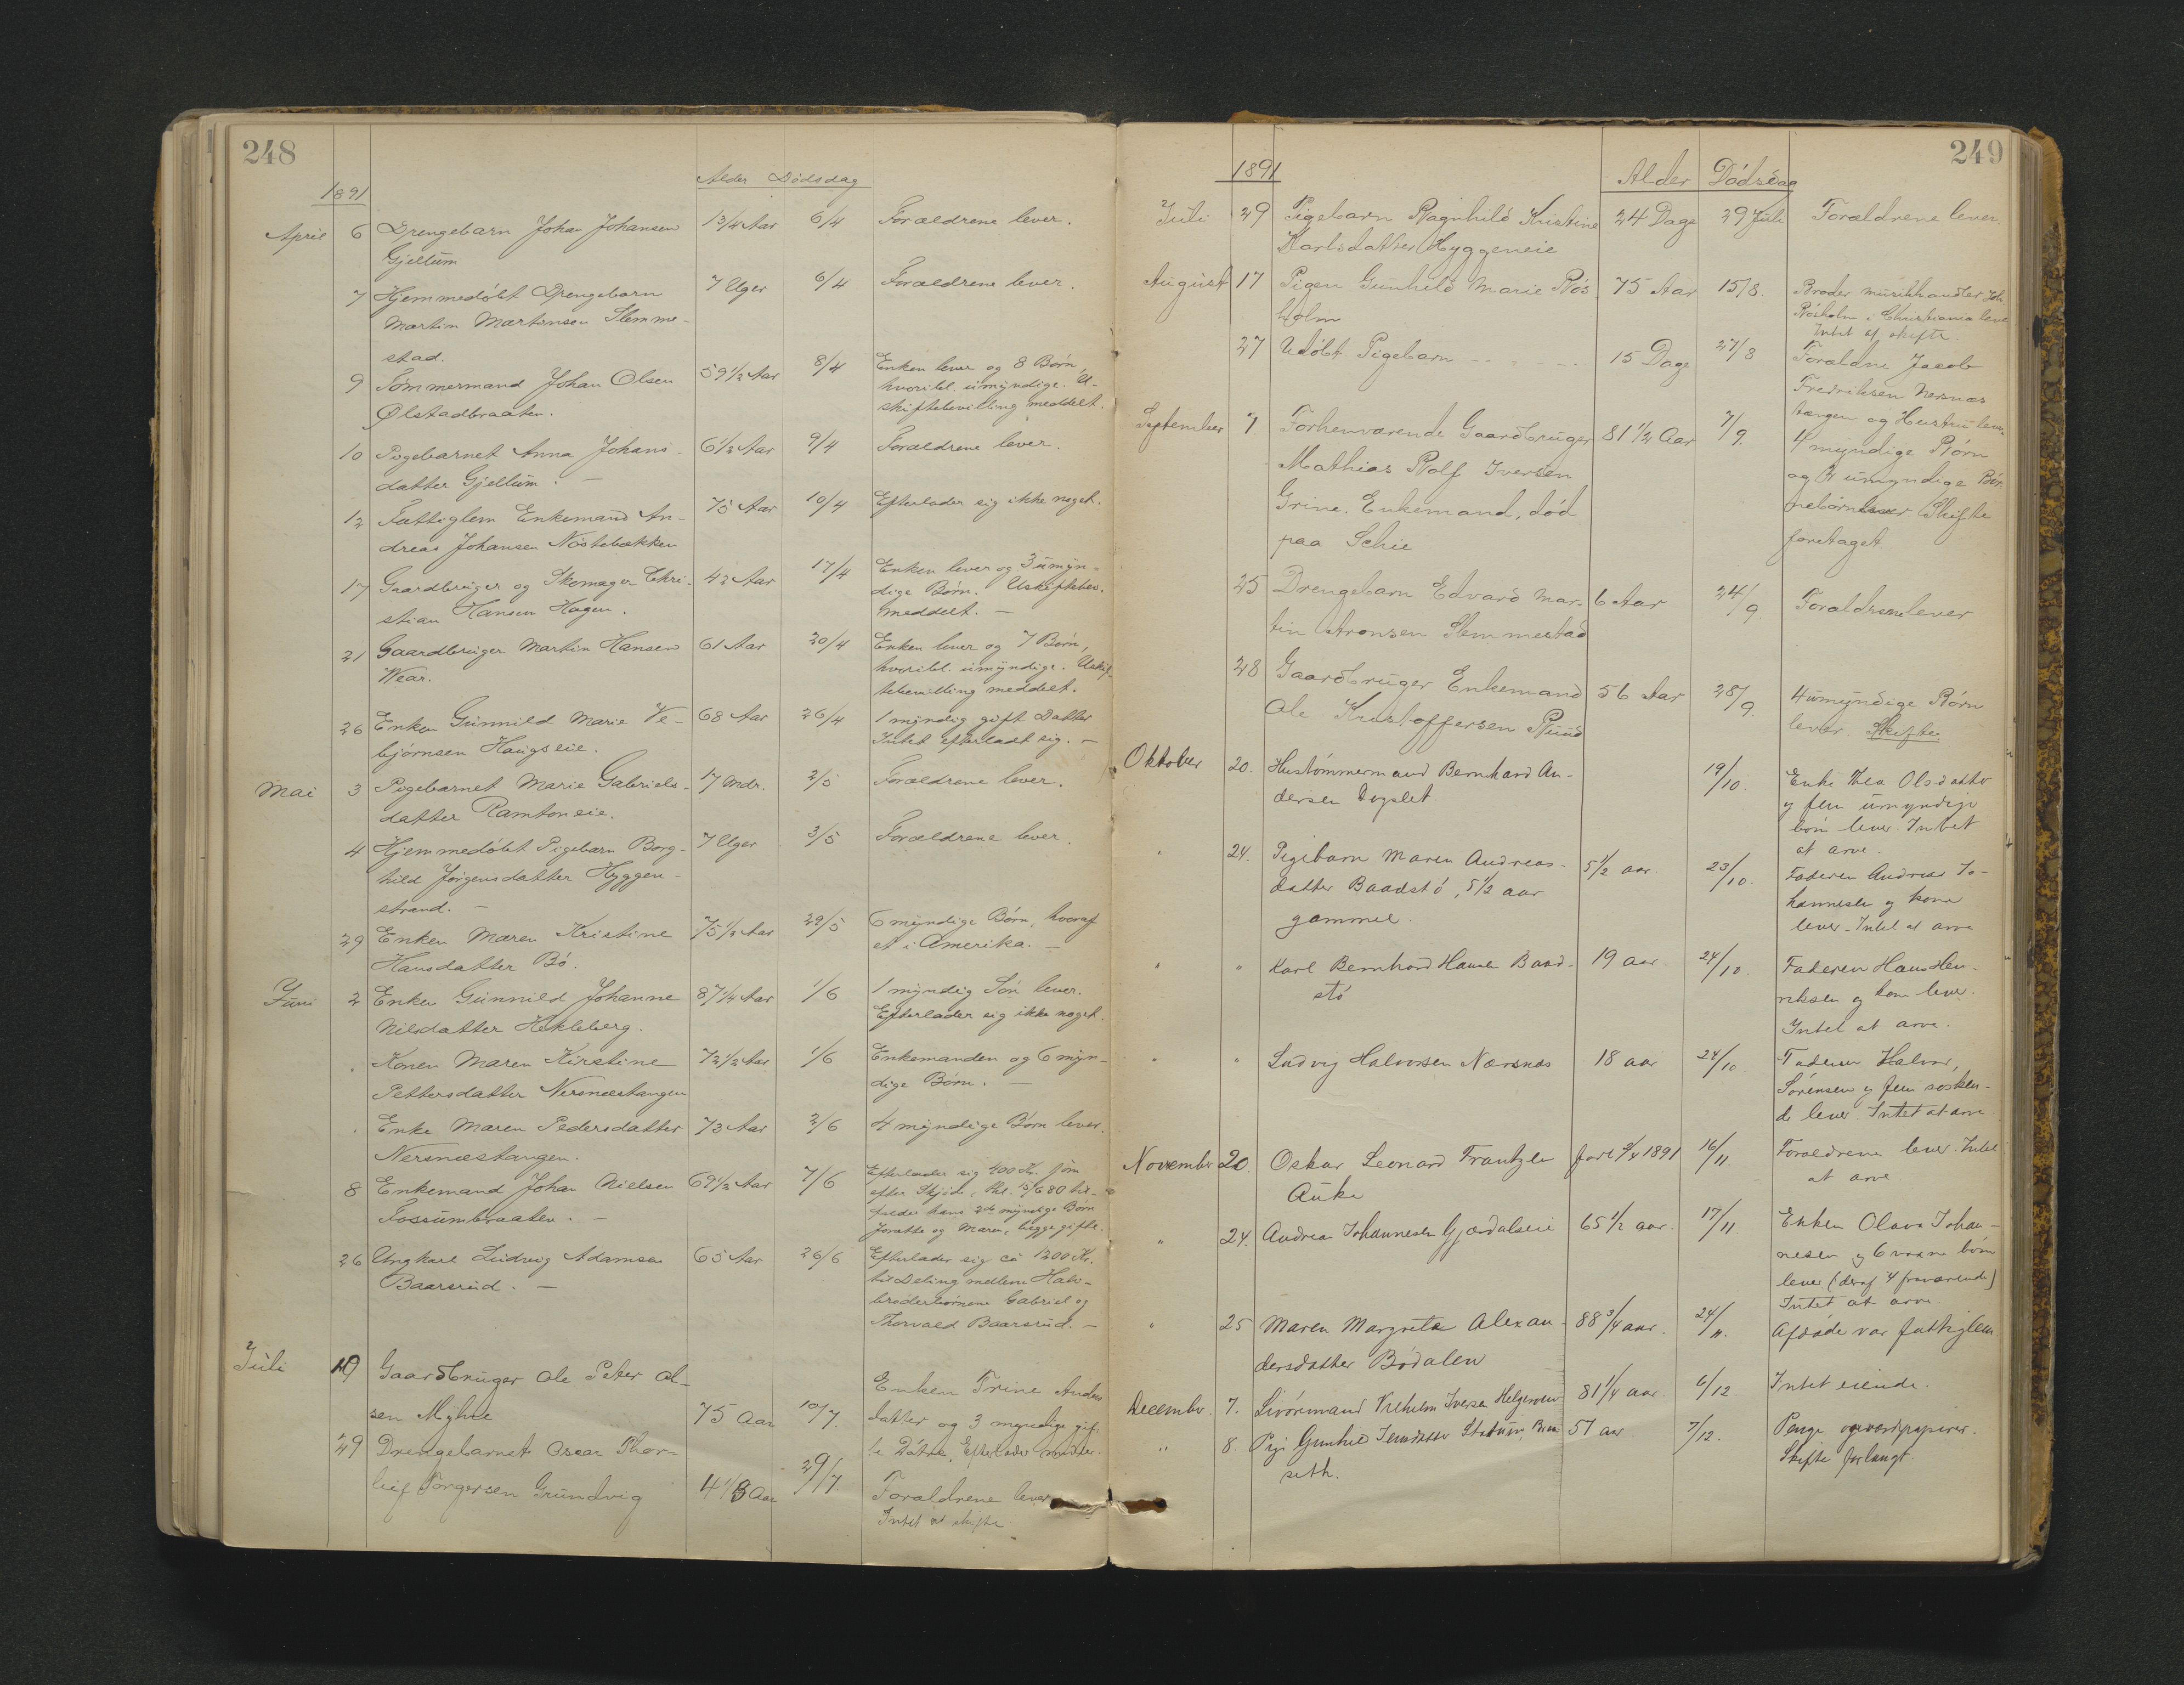 248
1891
Alder Dödsdag
April 6 Drengebarn Johan Johansen 1 3/4 Aar 6/4 Forældrene lever.
Gjellum
7 Hjemmedöbt Drengebarn 7 Uger 6/4 Forældrene lever.
Martin Martinsen Slemme-
stad.
9 Tömmermand Johan Olsen 59 1/2 Aar 8/4 Enken lever og 8 Börn,
Ølstadbraaten. hvoribl. umyndige. U-
skiftebevilling meddelt.
10 Pigebarnet Anna Johans- 6 1/2 Aar 9/4 Forældrene lever.
datter Gjellum. —
12 Fattiglem Enkemand An- 75 Aar 10/4 Efterlader sig ikke noget.
dreas Johansen Nöstebækken
17 Gaardbruger og Skomager Chri- 42 Aar 17/4 Enken lever og 3 umyn-
stian Hansen Hagen. dige Börn. Uskiftebev.
meddelt. —
21 Gaardbruger Martin Hansen 61 Aar 20/4 Enken lever og 7 Börn,
Wear. hvoribl. umyndige. Uskif-
tebevilling meddelt.
26 Enken Gunnild Marie Ve- 68 Aar 26/4 1 myndig gift Datter
björnsen Haugseie. Intet efterladt sig. —
Mai 3 Pigebarnet Marie Gabriels- 17 Mdr. 2/5 Forældrene lever.
datter Ramtoneie.
4 Hjemmedöbt Pigebarn Borg- 7 Uger 3/5 Forældrene lever.
hild Jörgensdatter Hyggen-
strand. —
29 Enken Maren Kristine 75 1/2 Aar 29/5 6 myndige Börn, hvoraf
Hansdatter Bö. et i Amerika. —
Juni 2 Enken Gunnild Johanne 87 1/4 Aar 1/6 1 myndig Sön lever.
Nilsdatter Hekleberg. Efterlader sig ikke noget.
. Konen Maren Kirstine 72 1/2 Aar 1/6 Enkemanden og 6 myn-
Pettersdatter Nersnæstangen dige Börn. —
. Enke Maren Pedersdatter 73 Aar 2/6 4 myndige Börn lever.
Nersnæstangen.
8 Enkemand Johan Nielsen 69 1/2 Aar 7/6 Efterlader sig 400 Kr. som
Fossumbraaten. — efter Skjöde, thl. 15/6 80 til-
falder hans 2de myndige Börn
Jonette og Maren, begge gifte.
26 Ungkarl Ludvig Adamsen 65 Aar 26/6 Efterlader sig ca 1200 Kr.
Baarsrud. — til Deling mellem Halv-
broderbörnene Gabriel og
Thorvald Baarsrud. —
Juli 19 Gaardbruger Ole Peter Ol-
sen Myhre 75 Aar 10/7. Enken Trine Anders
datter og 3 myndige gif-
te Dötre. Efterlader midler.
29 Drengebarnet Oscar Thor-
leif Torgersen Grundvig 4 1/3 Aar 29/7 Forældrene lever
Intet at skifte.
249
1891
Alder Dödsdag
Juli 29 Pigebarn Ragnhild Kristine 24 Dage 29 Juli Forældrene lever
Karlsdatter Hyggeneie
August 17 Pigen Gunhild Marie Rös- 75 Aar 15/8. Broder musikhandler Joh.
holm Rösholm i Christiania lever
Intet at skifte.
27 Udöbt Pigebarn - - - - 15 Dage 27/8 Forældre Jacob
Fredriksen Nersnæs
tangen og Hustru lever
September 7 Forhenværende Gaardbruger 81 1/2 Aar 7/9. 4 myndige Börn
Mathias Rolf Iversen og umyndige Bör-
Grine. Enkemand, död nebörn lever Skifte
paa Schie foretaget
25 Drengebarn Edvard Mar- 6 Aar 24/9 Forældrene lever
tin Aronsen Slemmestad
28 Gaardbruger Enkemand 56 Aar 28/9. 4 umyndige Börn
Ole Kristoffersen Ruud lever. Skifte
Oktober 20. Hustömmermand Bernhard An- 19/10. Enke Thea Olsdatter
dersen Bogslet og fem umyndige
börn lever. Intet
at arve.
" 24. Pigebarn Maren Andreas- 5 1/2 aar. 23/10. Faderen Andreas Jo-
datter Baadstö, 5 1/2 aar hannesen og kone
gammel. lever - Intet at arve
" " Karl Bernhard Hansen Baad- 19 aar. 24/10. Faderen Hans Hen-
stö riksen og kone lever.
Intet at arve.
" " Ludvig Halvorsen Nærsnæs 18 aar 24/10. Faderen Halvor
Sörensen og fem sösken-
de lever. Intet at arve
November 20. Oskar Leonard Frantzen föd 5/4 1891 16/11. Forældrene lever. Intet
Auke at arve.
" 24. Andreas Johannesen Gjerdalseie 65 1/2 aar. 17/11 Enken Olava Johan-
nesen og 6 voxne börn
lever (deraf 4 fraværende)
Intet at arve.
" 25 Maren Margrete Alexan- 88 3/4 aar. 24/11. Afdöde var fattiglem
dersdatter Bödalen
December. 7. Livöremand Vilhelm Iversen Helgerom 81 1/4 aar. 6/12. Intet eiende.
" 8. Pige Gunhild 51 aar 7/12. Penge og værdipapirer.
seth. Skifte forlangt.